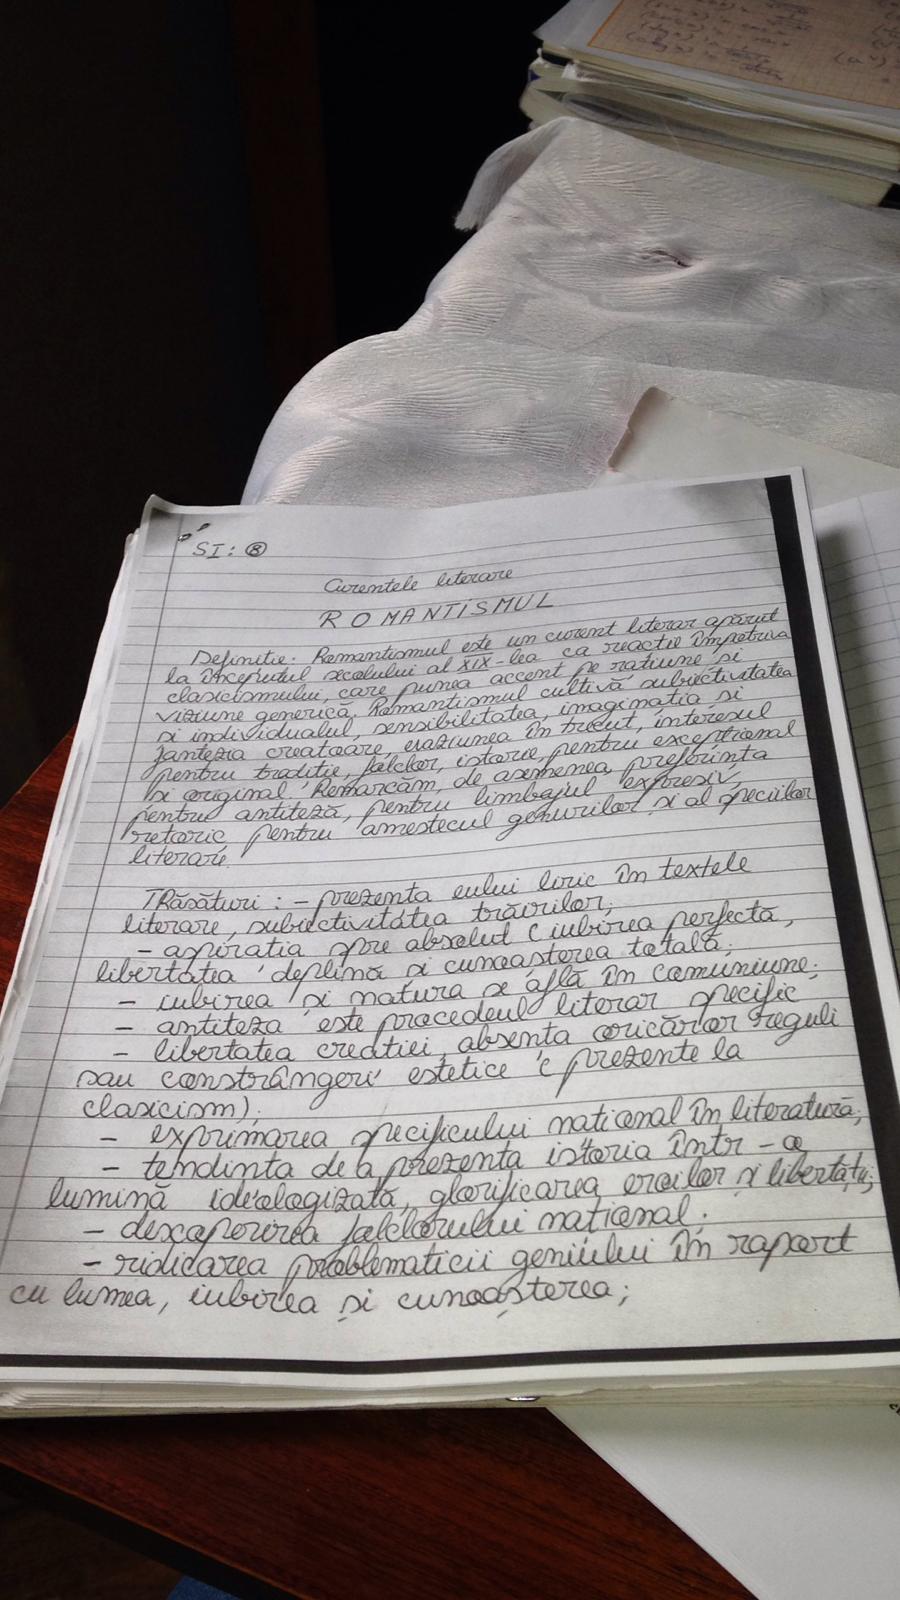 SI: 8
Curentele literare
ROMANTISMUL
Definiție: Romantismul este un curent literar apărut
la începutul secolului al XIX-lea ca reacție împotriva
clasicismului, care punea accent pe rațiune și
viziune generică. Romantismul cultivă subiectivitatea
și individualul, sensibilitatea, imaginația și
fantezia creatoare, evaziunea în trecut, interesul
pentru tradiție, folclor, istorie, pentru excepțional
și original. Remarcăm, de asemenea, preferința
pentru antiteză, pentru limbajul expresiv,
retoric pentru amestecul genurilor și al speciilor
literare.
TRăsături : - prezența eului liric în textele
literare, subiectivitatea trăirilor;
- aspirația spre absolut (iubirea perfectă,
libertatea deplină și cunoașterea totală;
- iubirea și natura se află în comuniune;
- antiteza este procedeul literar specific
- libertatea creației, absența oricăror reguli
sau constrângeri estetice (prezente la
clasicism);
- exprimarea specificului național în literatură;
- tendința de a prezenta istoria într-o
lumină ideologizată, glorificarea eroilor și libertății;
- descoperirea folclorului național;
- ridicarea problematicii geniului în raport
cu lumea, iubirea și cunoașterea;